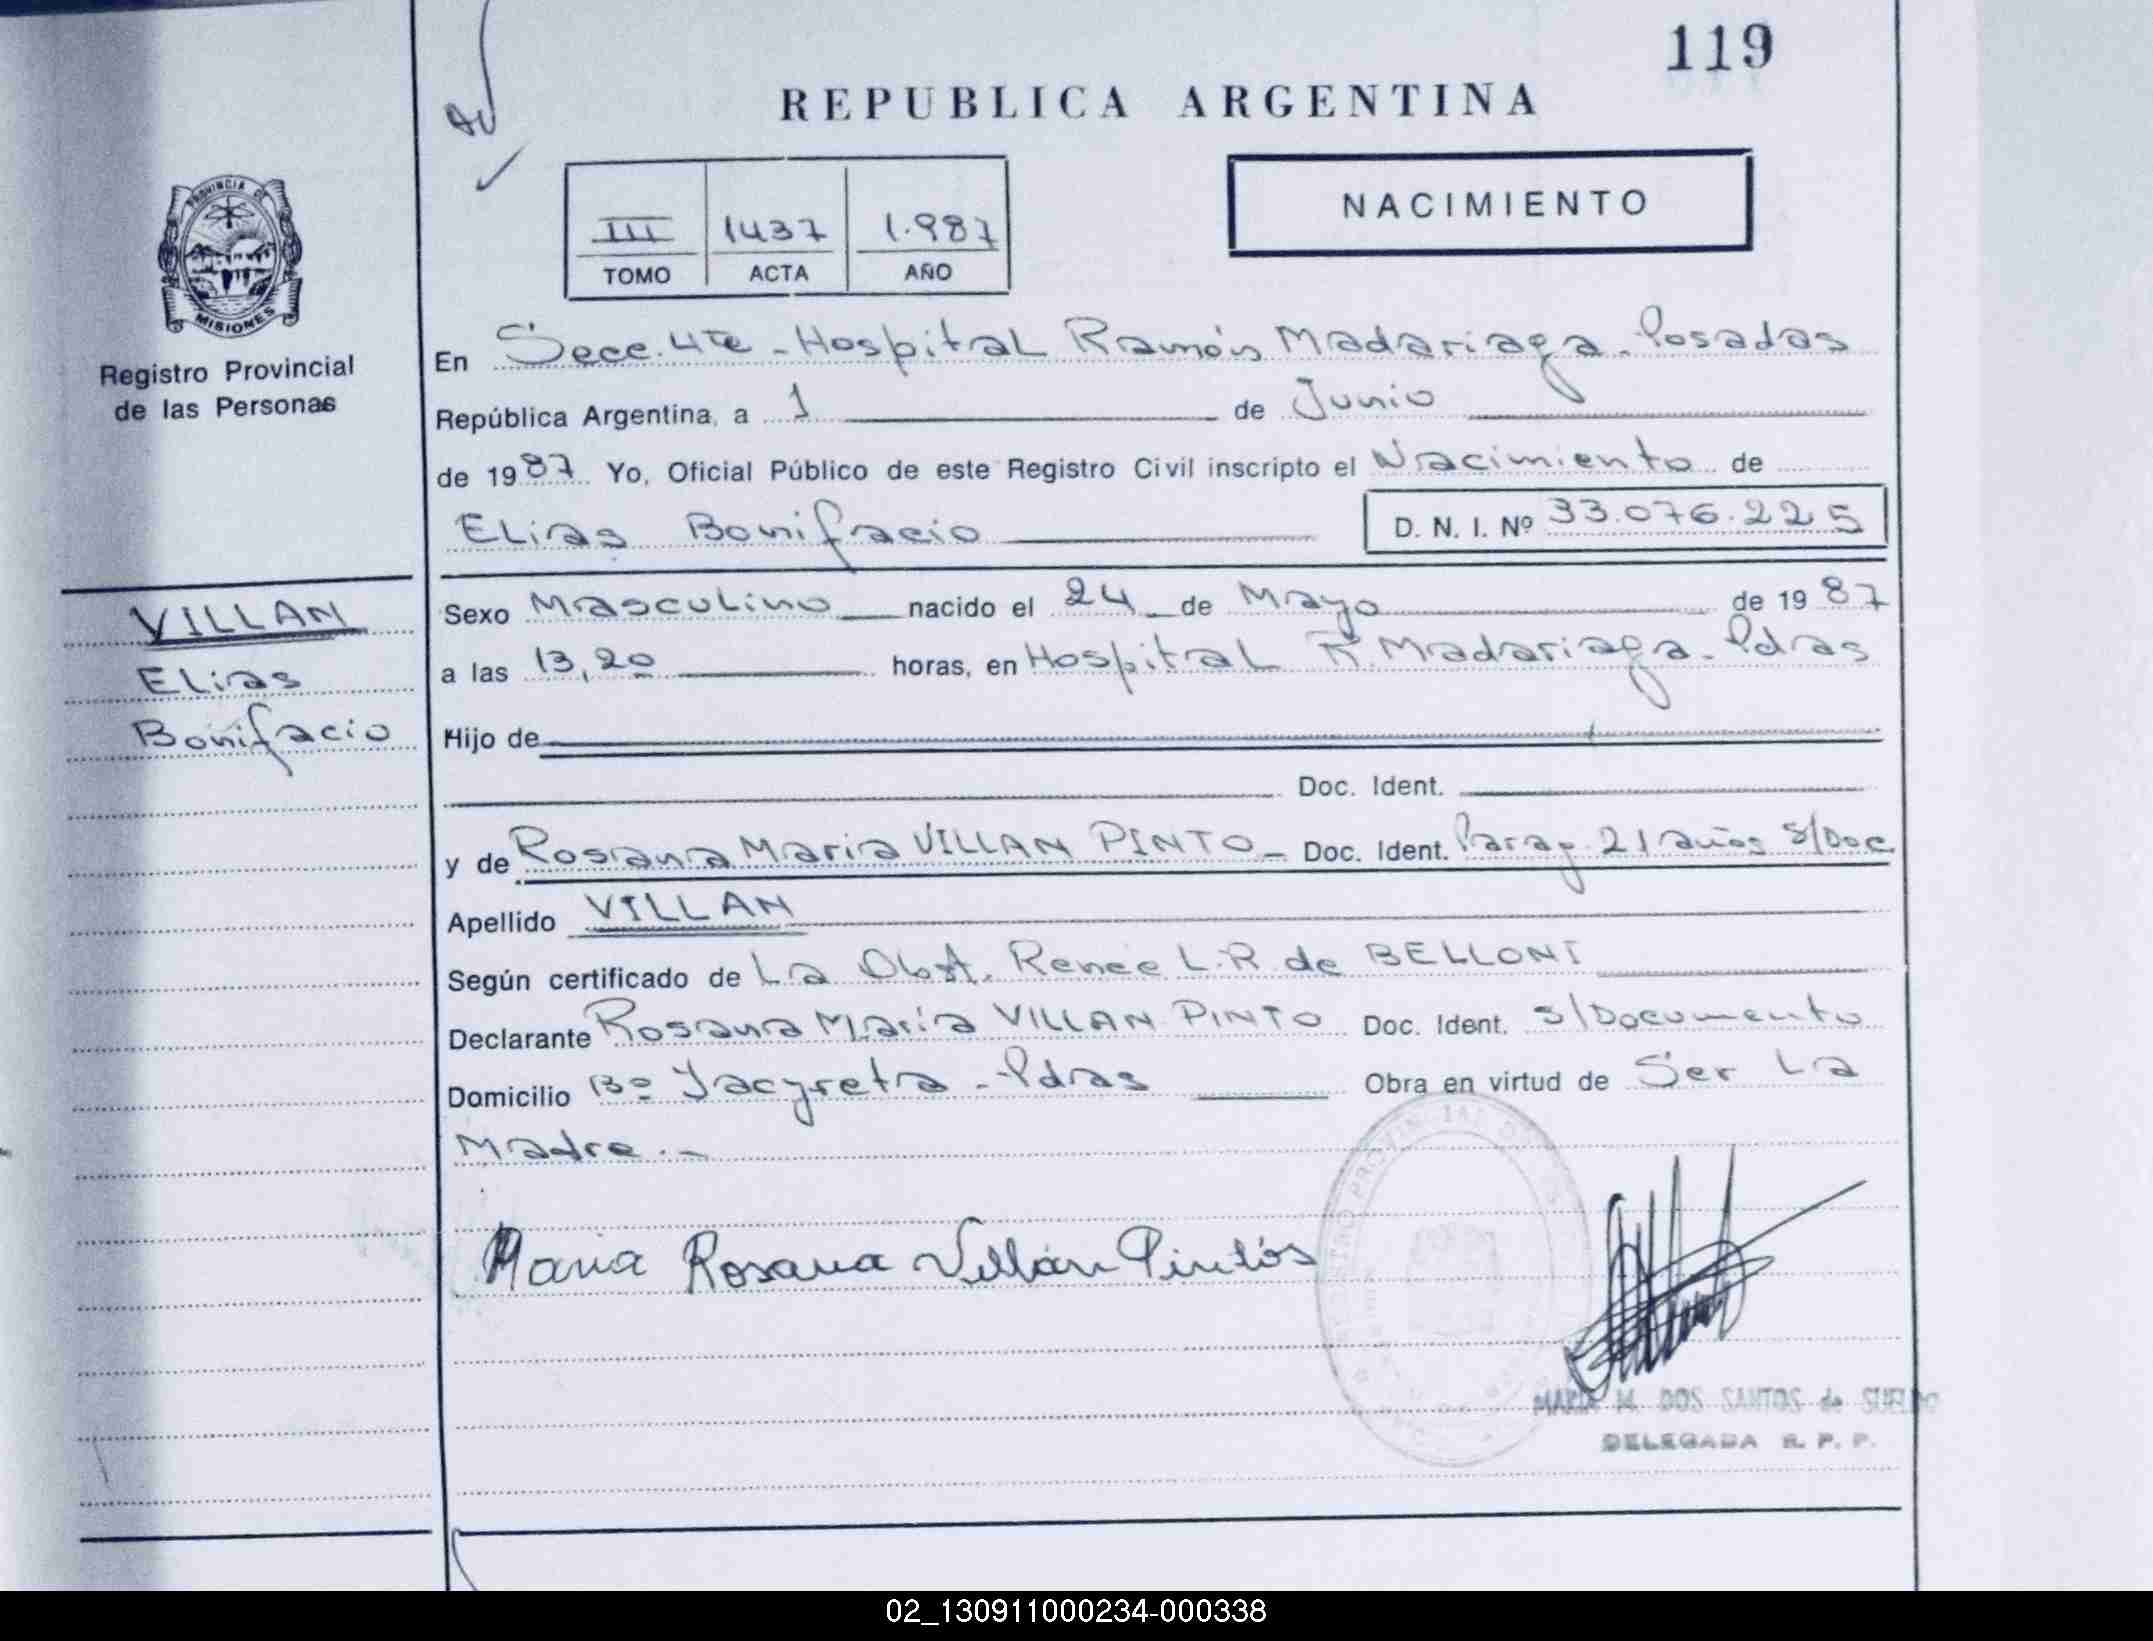 119
REPUBLICA ARGENTINA
NACIMIENTO
III 1437 1.987
TOMO ACTA AÑO
PROVINCIA DE
MISIONES
Registro Provincial
de las Personas
En Secc. 4te - Hospital Ramón Madariaga - Posadas
República Argentina, a 1 de Junio
de 1987 Yo, Oficial Público de este Registro Civil inscripto el Nacimiento de
Elias Bonifacio D. N. I. Nº 33.076.225
VILLAN
Elias
Bonifacio
Sexo Masculino nacido el 24 de Mayo de 1987
a las 13,20 horas, en Hospital R. Madariaga - Pdas
Hijo de
Doc. Ident.
y de Rosana Maria VILLAN PINTO - Doc. Ident. Parag. 21 años S/Doc.
Apellido VILLAN
Según certificado de La Obst. Renee L.R. de BELLONI
Declarante Rosana María VILLAN PINTO Doc. Ident. S/Documento
Domicilio Bº Yacyreta - Pdas Obra en virtud de Ser La
Madre.-
Maria Rosana Villán Pintós
MARIA M. DOS SANTOS de SUELDO
DELEGADA R. P. P.
02_130911000234-000338